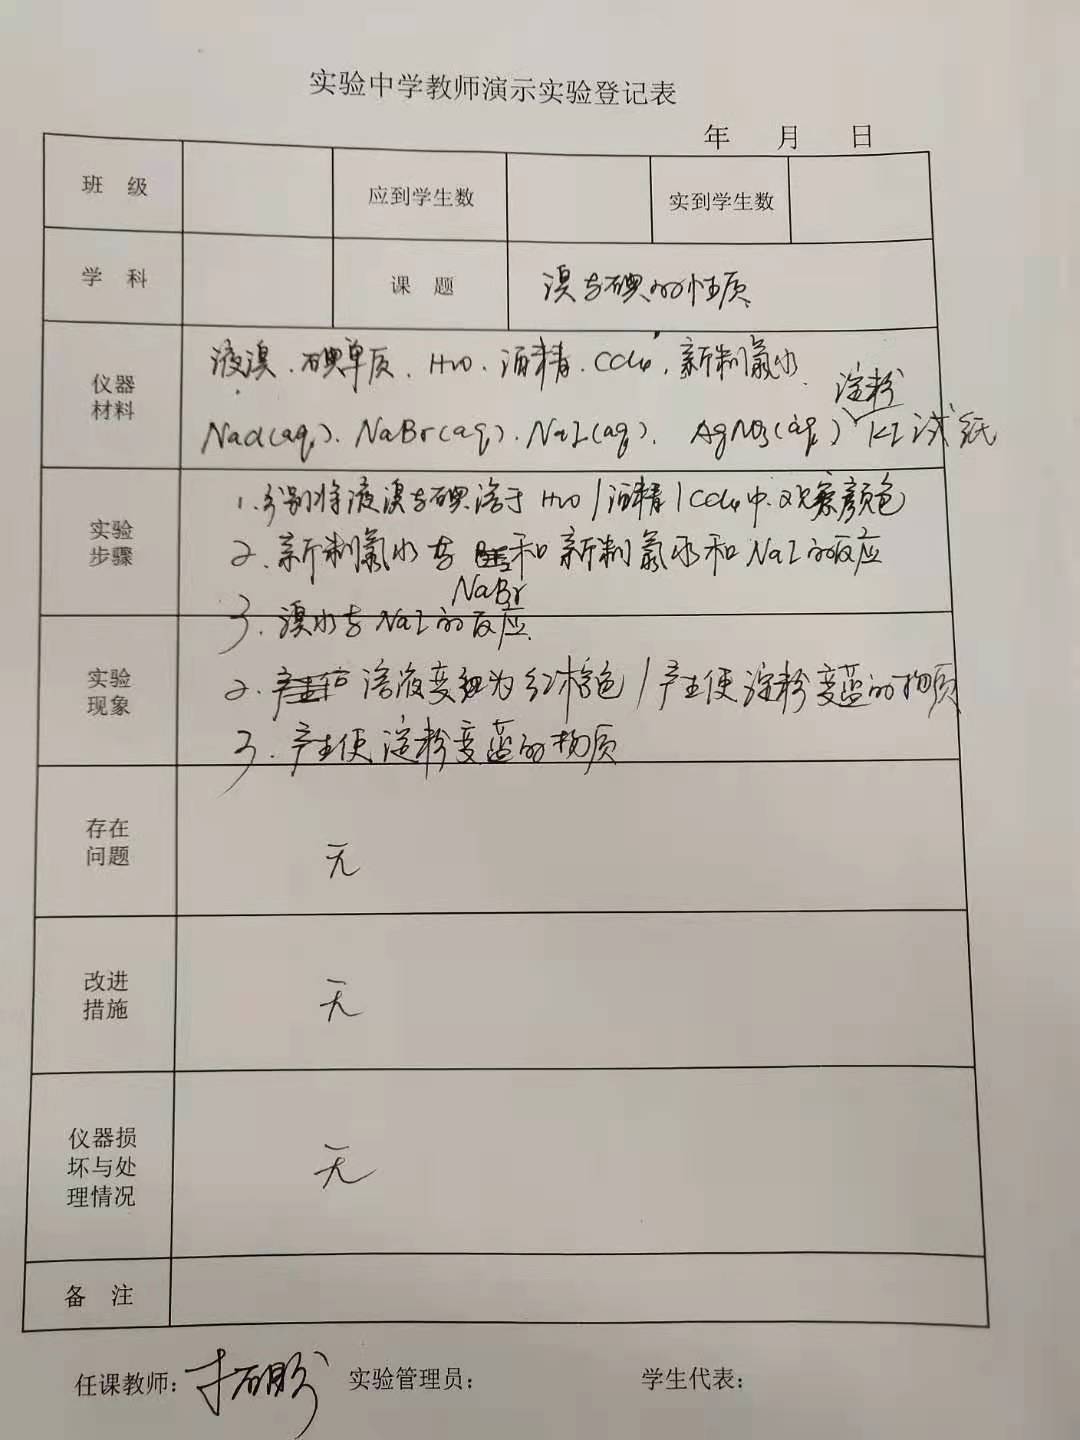 实验中学教师演示实验登记表
年 月 日
班 级 应到学生数 实到学生数
学 科 课 题 溴与碘的性质
仪器材料
液溴、碘单质、H₂O、酒精、CCl₄、新制氯水
淀粉
NaCl(aq)、NaBr(aq)、NaI(aq)、AgNO₃(aq) KI试纸
实验步骤
1.分别将液溴与碘溶于H₂O/酒精/CCl₄中.观察颜色
2.新制氯水与 和新制氯水和NaI的反应
NaBr
3.溴水与NaI的反应
实验现象
2. 溶液变为红棕色/产生使淀粉变蓝的物质
3.产生使淀粉变蓝的物质
存在问题
无
改进措施
无
仪器损坏与处理情况
无
备 注
任课教师: 实验管理员: 学生代表: